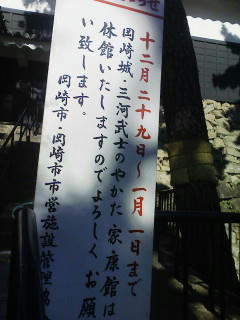 らせ
十二月二十九日~一月一日まで
岡崎城、三河武士のやかた家康館は
休館いたしますのでよろしくお願
い致します。
岡崎市・岡崎市市営施設管理協